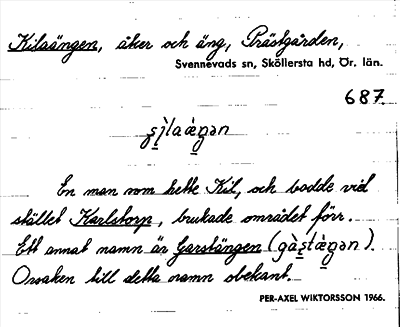 Kilaängen, åker och äng, Prästgården,
Svennevads sn, Sköllersta hd, Ör. län.
687.
En man som hette Kil, och bodde vid
stället Karlstorp, brukade området förr.
Ett annat namn är Garstängen
Orsaken till detta namn obekant.
PER-AXEL WIKTORSSON 1966.